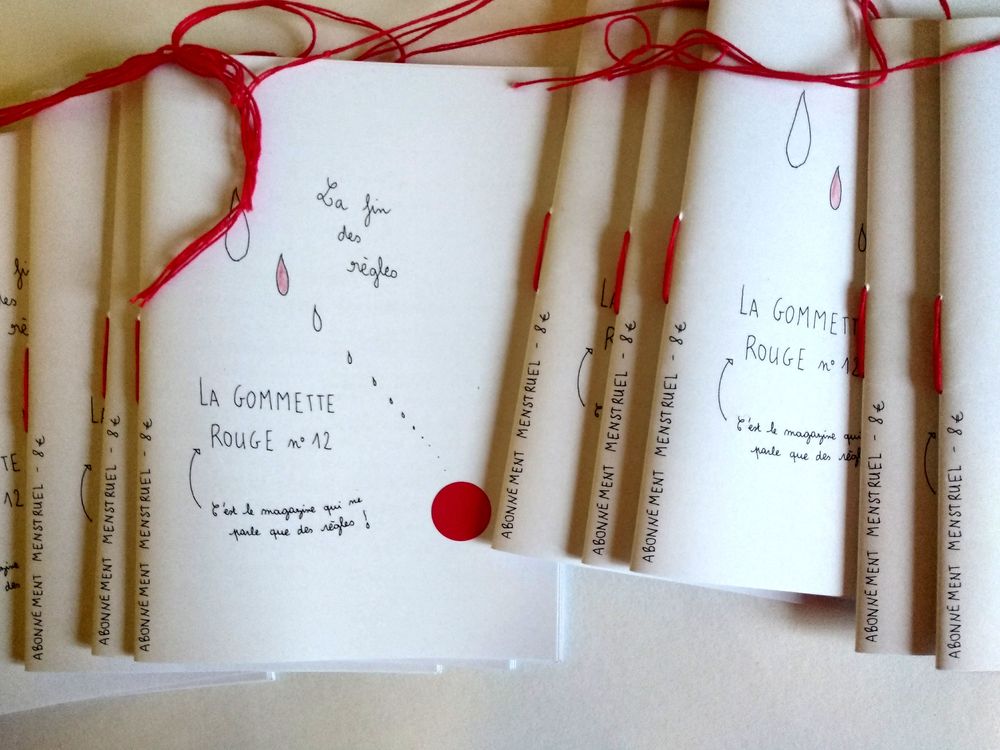 La fin
des
règles
LA GOMMETTE
ROUGE n° 12
C'est le magazine qui ne
parle que des règles !
ABONNEMENT MENSTRUEL - 8 €
ABONNEMENT MENSTRUEL - 8 €
ABONNEMENT MENSTRUEL - 8 €
ABONNEMENT MENSTRUEL - 8 €
ABONNEMENT MENSTRUEL - 8 €
ABONNEMENT MENSTRUEL - 8 €
LA GOMMETT
ROUGE n° 12
C'est le magazine qui
parle que des règl
ABONNEMENT MENSTRUEL - 8 €
ABONNEMENT MENSTRUEL - 8 €